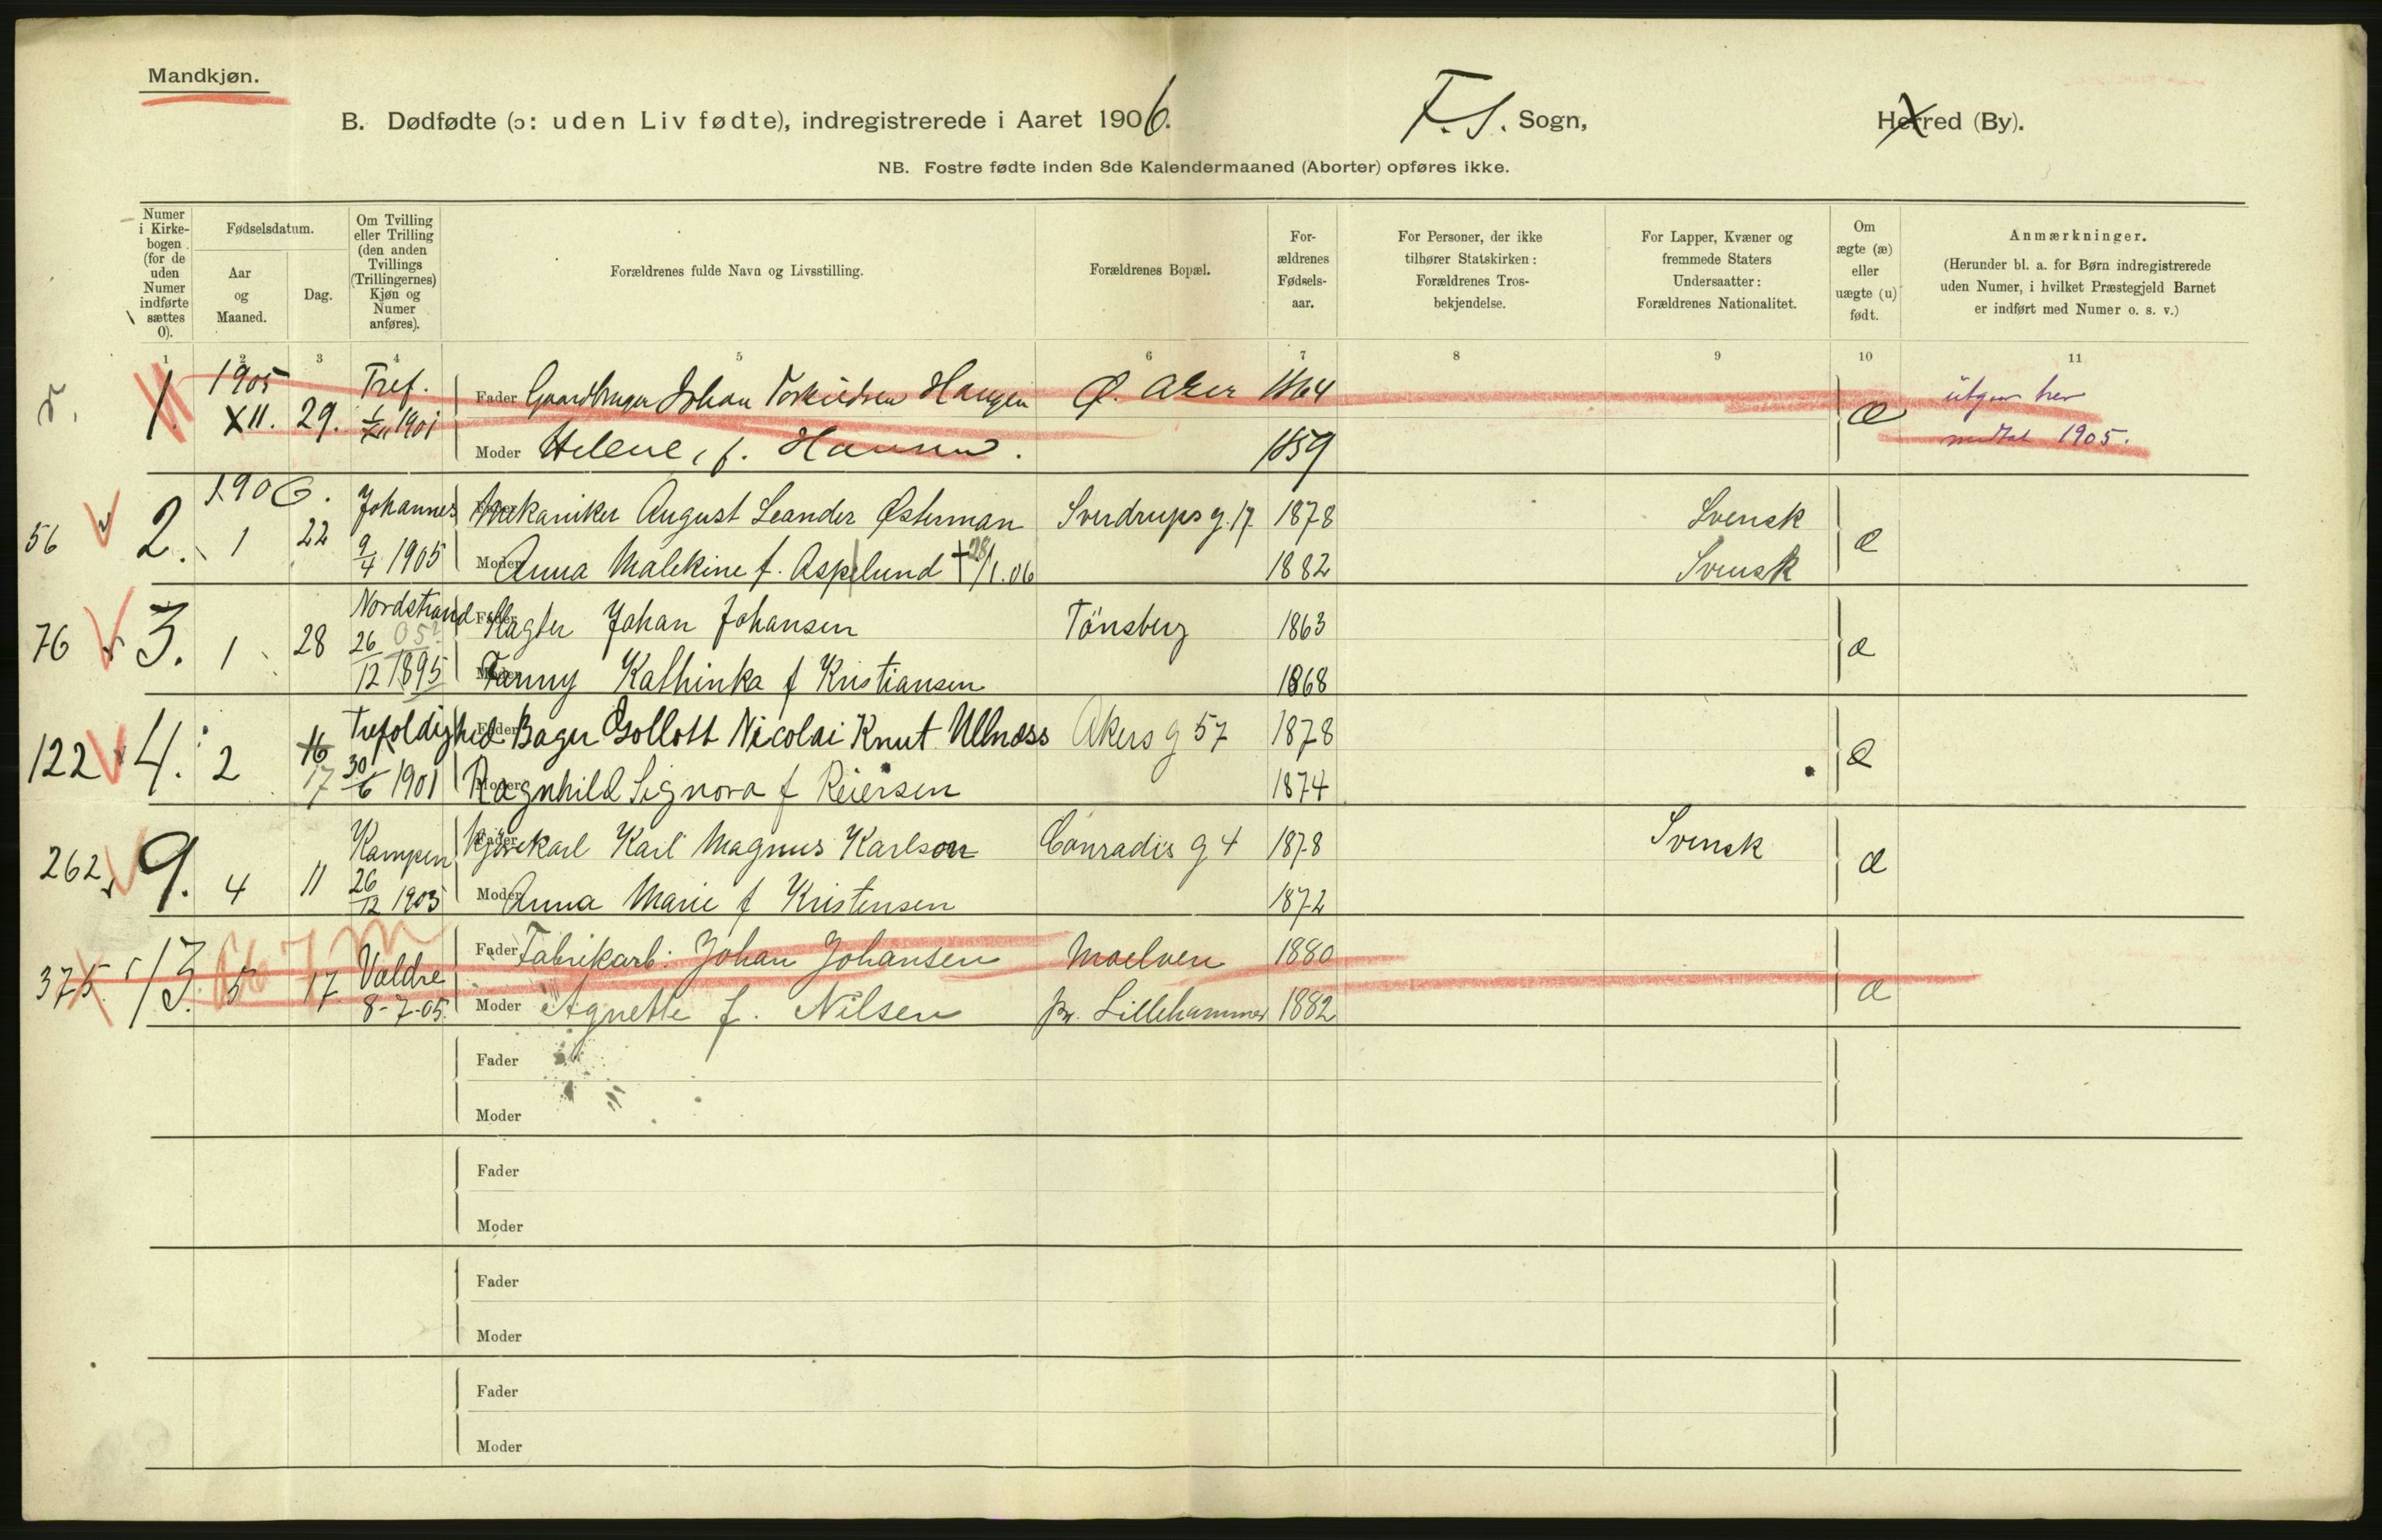 Mandkjøn.
B. Dødfødte (ɔ: uden Liv fødte), indregistrerede i Aaret 1906. F. S. Sogn, Herred (By).
NB. Fostre fødte inden 8de Kalendermaaned (Aborter) opføres ikke.
Numer i Kirkebogen (for de uden Numer indførte sættes 0).
Fødselsdatum.
Aar og Maaned.
Dag.
Om Tvilling eller Trilling (den anden Tvillings (Trillingernes) Kjøn og Numer anføres).
Forældrenes fulde Navn og Livsstilling.
Forældrenes Bopæl.
Forældrenes Fødselsaar.
For Personer, der ikke tilhører Statskirken: Forældrenes Trosbekjendelse.
For Lapper, Kvæner og fremmede Staters Undersaatter: Forældrenes Nationalitet.
Om ægte (æ) eller uægte (u) født.
Anmærkninger.
(Herunder bl. a. for Børn indregistrerede uden Numer, i hvilket Præstegjeld Barnet er indført med Numer o. s. v.)
1 2 3 4 5 6 7 8 9 10 11
1. 1905 XII. 29. Tref. 1901 Fader Gaardbruger Johan Haugen Ø. Aker 1864 æ
Moder Helene, f. Hansen. 1859 1905.
56 2. 1906. 1 22 Johannes 9/4 1905 Fader Mekaniker August Leander Østerman Sverdrups g. 17 1878 Svensk æ
Moder Anna Malekine f. Aspelund † 28/1.06 1882 Svensk
76 3. 1 28 Nordstrand 26/12 1895 05? Fader Slagter Johan Johansen Tönsberg 1863 æ
Moder Fanny Kathinka f Kristiansen 1868
122 4. 2 16 17 Trefoldighed 30/6 1901 Fader Bager Gollott Nicolai Knut Ullnæss Akers g 57 1878 æ
Moder Ragnhild Signora f Reiersen 1874
262 9. 4 11 Kampen 26/12 1903 Fader Kjørekarl Karl Magnus Karlson Conradis g 4 1878 Svensk æ
Moder Anna Marie f Kristensen 1872
375. 13. 5 17 Valdre 8-7-05. Fader Fabrikarb: Johan Johansen Moelven 1880 æ
Moder Agnette f. Nilsen pr. Lillehammer 1882
Fader
Moder
Fader
Moder
Fader
Moder
Fader
Moder